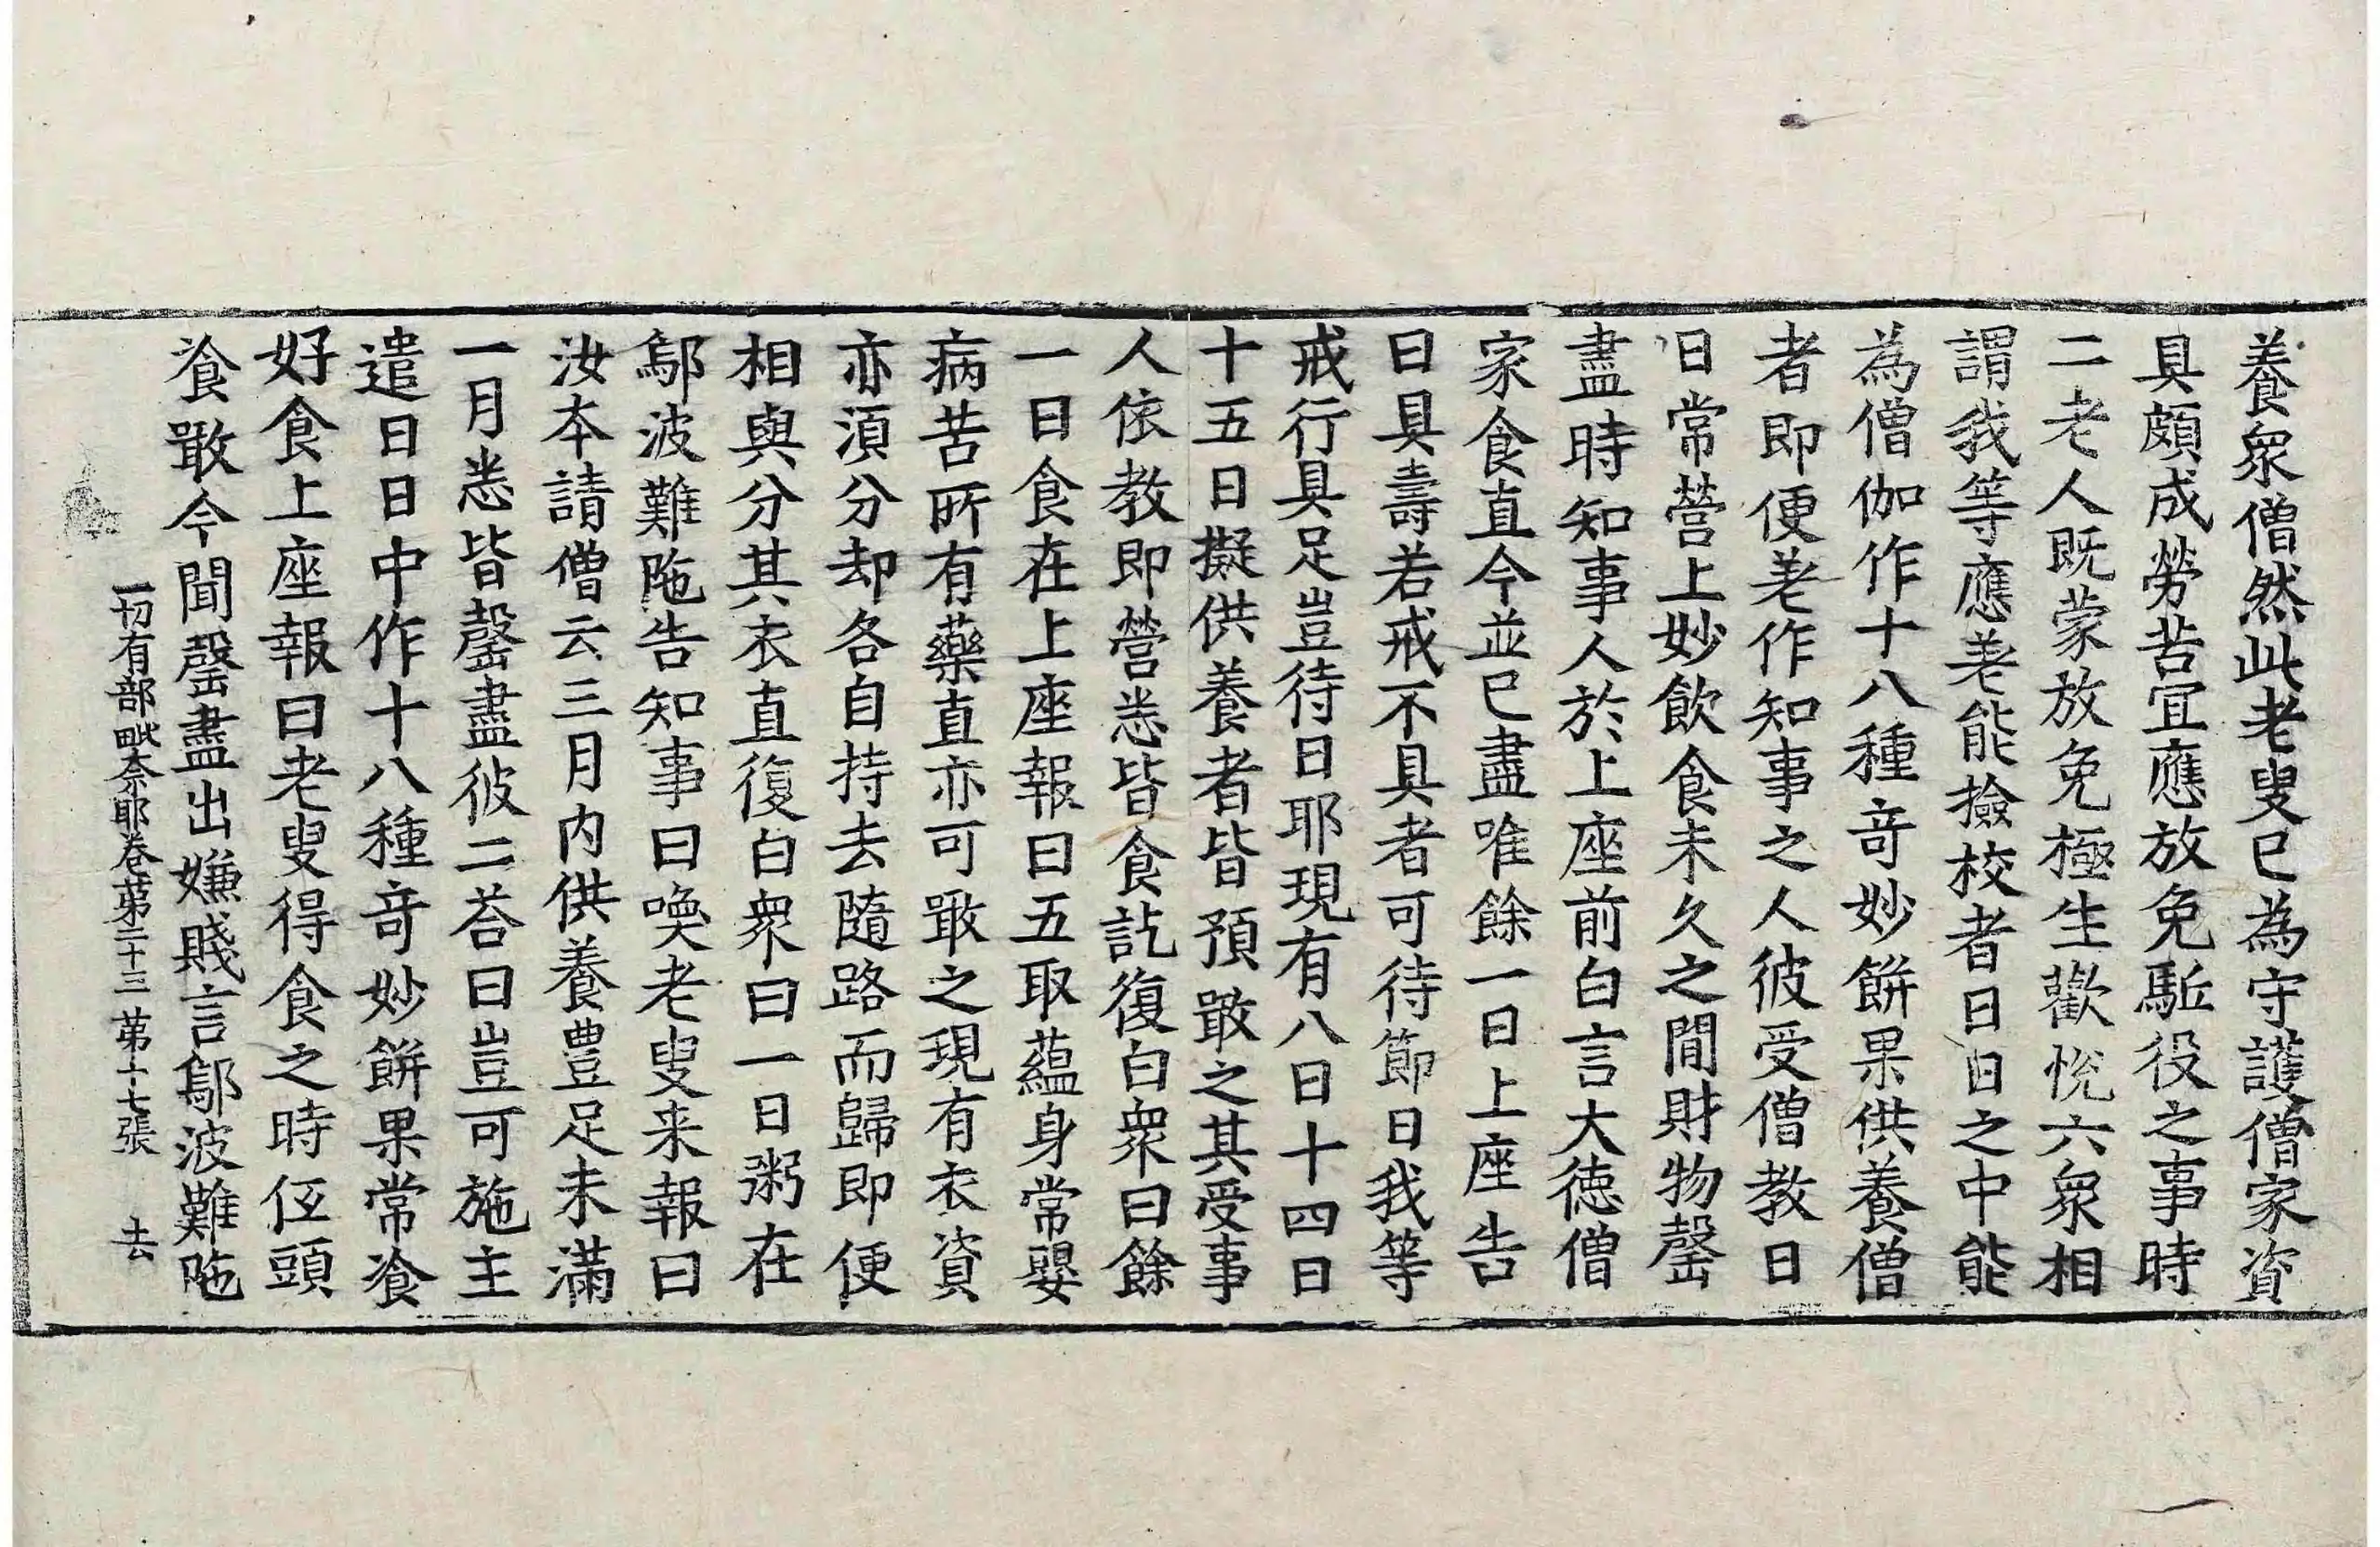 養衆僧然此老叟已為守護僧家資
具頗成勞苦冝應放免駈役之事時
二老人既蒙放免極生歡悅六衆相
謂我等應差能撿校者日日之中能
為僧伽作十八種竒妙餅果供養僧
者即便差作知事之人彼受僧教日
日常營上妙飲食未久之間財物罄
盡時知事人於上座前白言大徳僧
家食直今並已盡唯餘一日上座告
曰具壽若戒不具者可待節日我等
戒行具足豈待日耶現有八日十四日
十五日擬供養者皆預噉之其受事
人依教即營悉皆食訖復白衆曰餘
一日食在上座報曰五取蘊身常嬰
病苦所有藥直亦可噉之現有衣資
亦須分却各自持去隨路而歸即便
相與分其衣直復白衆曰一日粥在
鄔波難陁告知事曰喚老叟来報曰
汝夲請僧云三月内供養豊足未滿
一月悉皆罄盡彼二荅曰豈可施主
遣日日中作十八種竒妙餅果常飡
好食上座報曰老叟得食之時伍頭
飡噉今聞罄盡出嫌賤言鄔波難陁
一切有部毗奈耶卷第二十三 第十七張 去